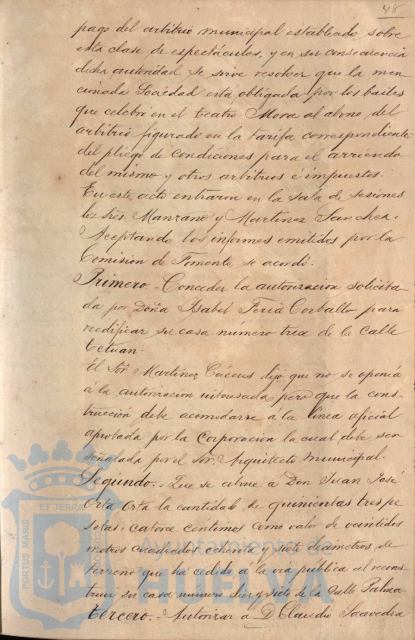 48
pago del arbitrio municipal establecido sobre
esta clase de espectáculos, y en su consecuencia
dicha autoridad se sirve resolver que la men
cionada Sociedad está obligada por los bailes
que celebró en el teatro Mora al abono del
arbitrio figurado en la tarifa correspondiente
del pliego de condiciones para el arriendo
del mismo y otros arbitrios é impuestos.
En este acto entraron en la sala de sesiones
los Sres Manzano y Martinez Sanchez.
Aceptando los informes emitidos por la
Comision de Fomento, se acordó:
Primero.- Conceder la autorizacion solicita
da por Doña Isabel Feria Corbalto para
reedificar su casa número trece de la Calle
Tetuan.
El Sor Martinez dijo que no se oponia
á la autorizacion interesada pero que la cons-
truccion debe acomodarse á la linea oficial
aprobada por la Corporacion la cual debe ser
señalada por el Sor Arquitecto municipal.
Segundo.- Que se abone á Don Juan José
Orta Orta la cantidad de quinientas tres pe
setas catorce centimos como valor de veintidos
metros cuadrados ochenta y siete decimetros, de
terreno que ha cedido á la via publica al recons
truir su casa número diez y siete de la Calle Palma
Tercero.- Autorizar á D. Claudio Saavedra
PORTUS MARIS ET TERRAE
Ayuntamiento de
HUELVA